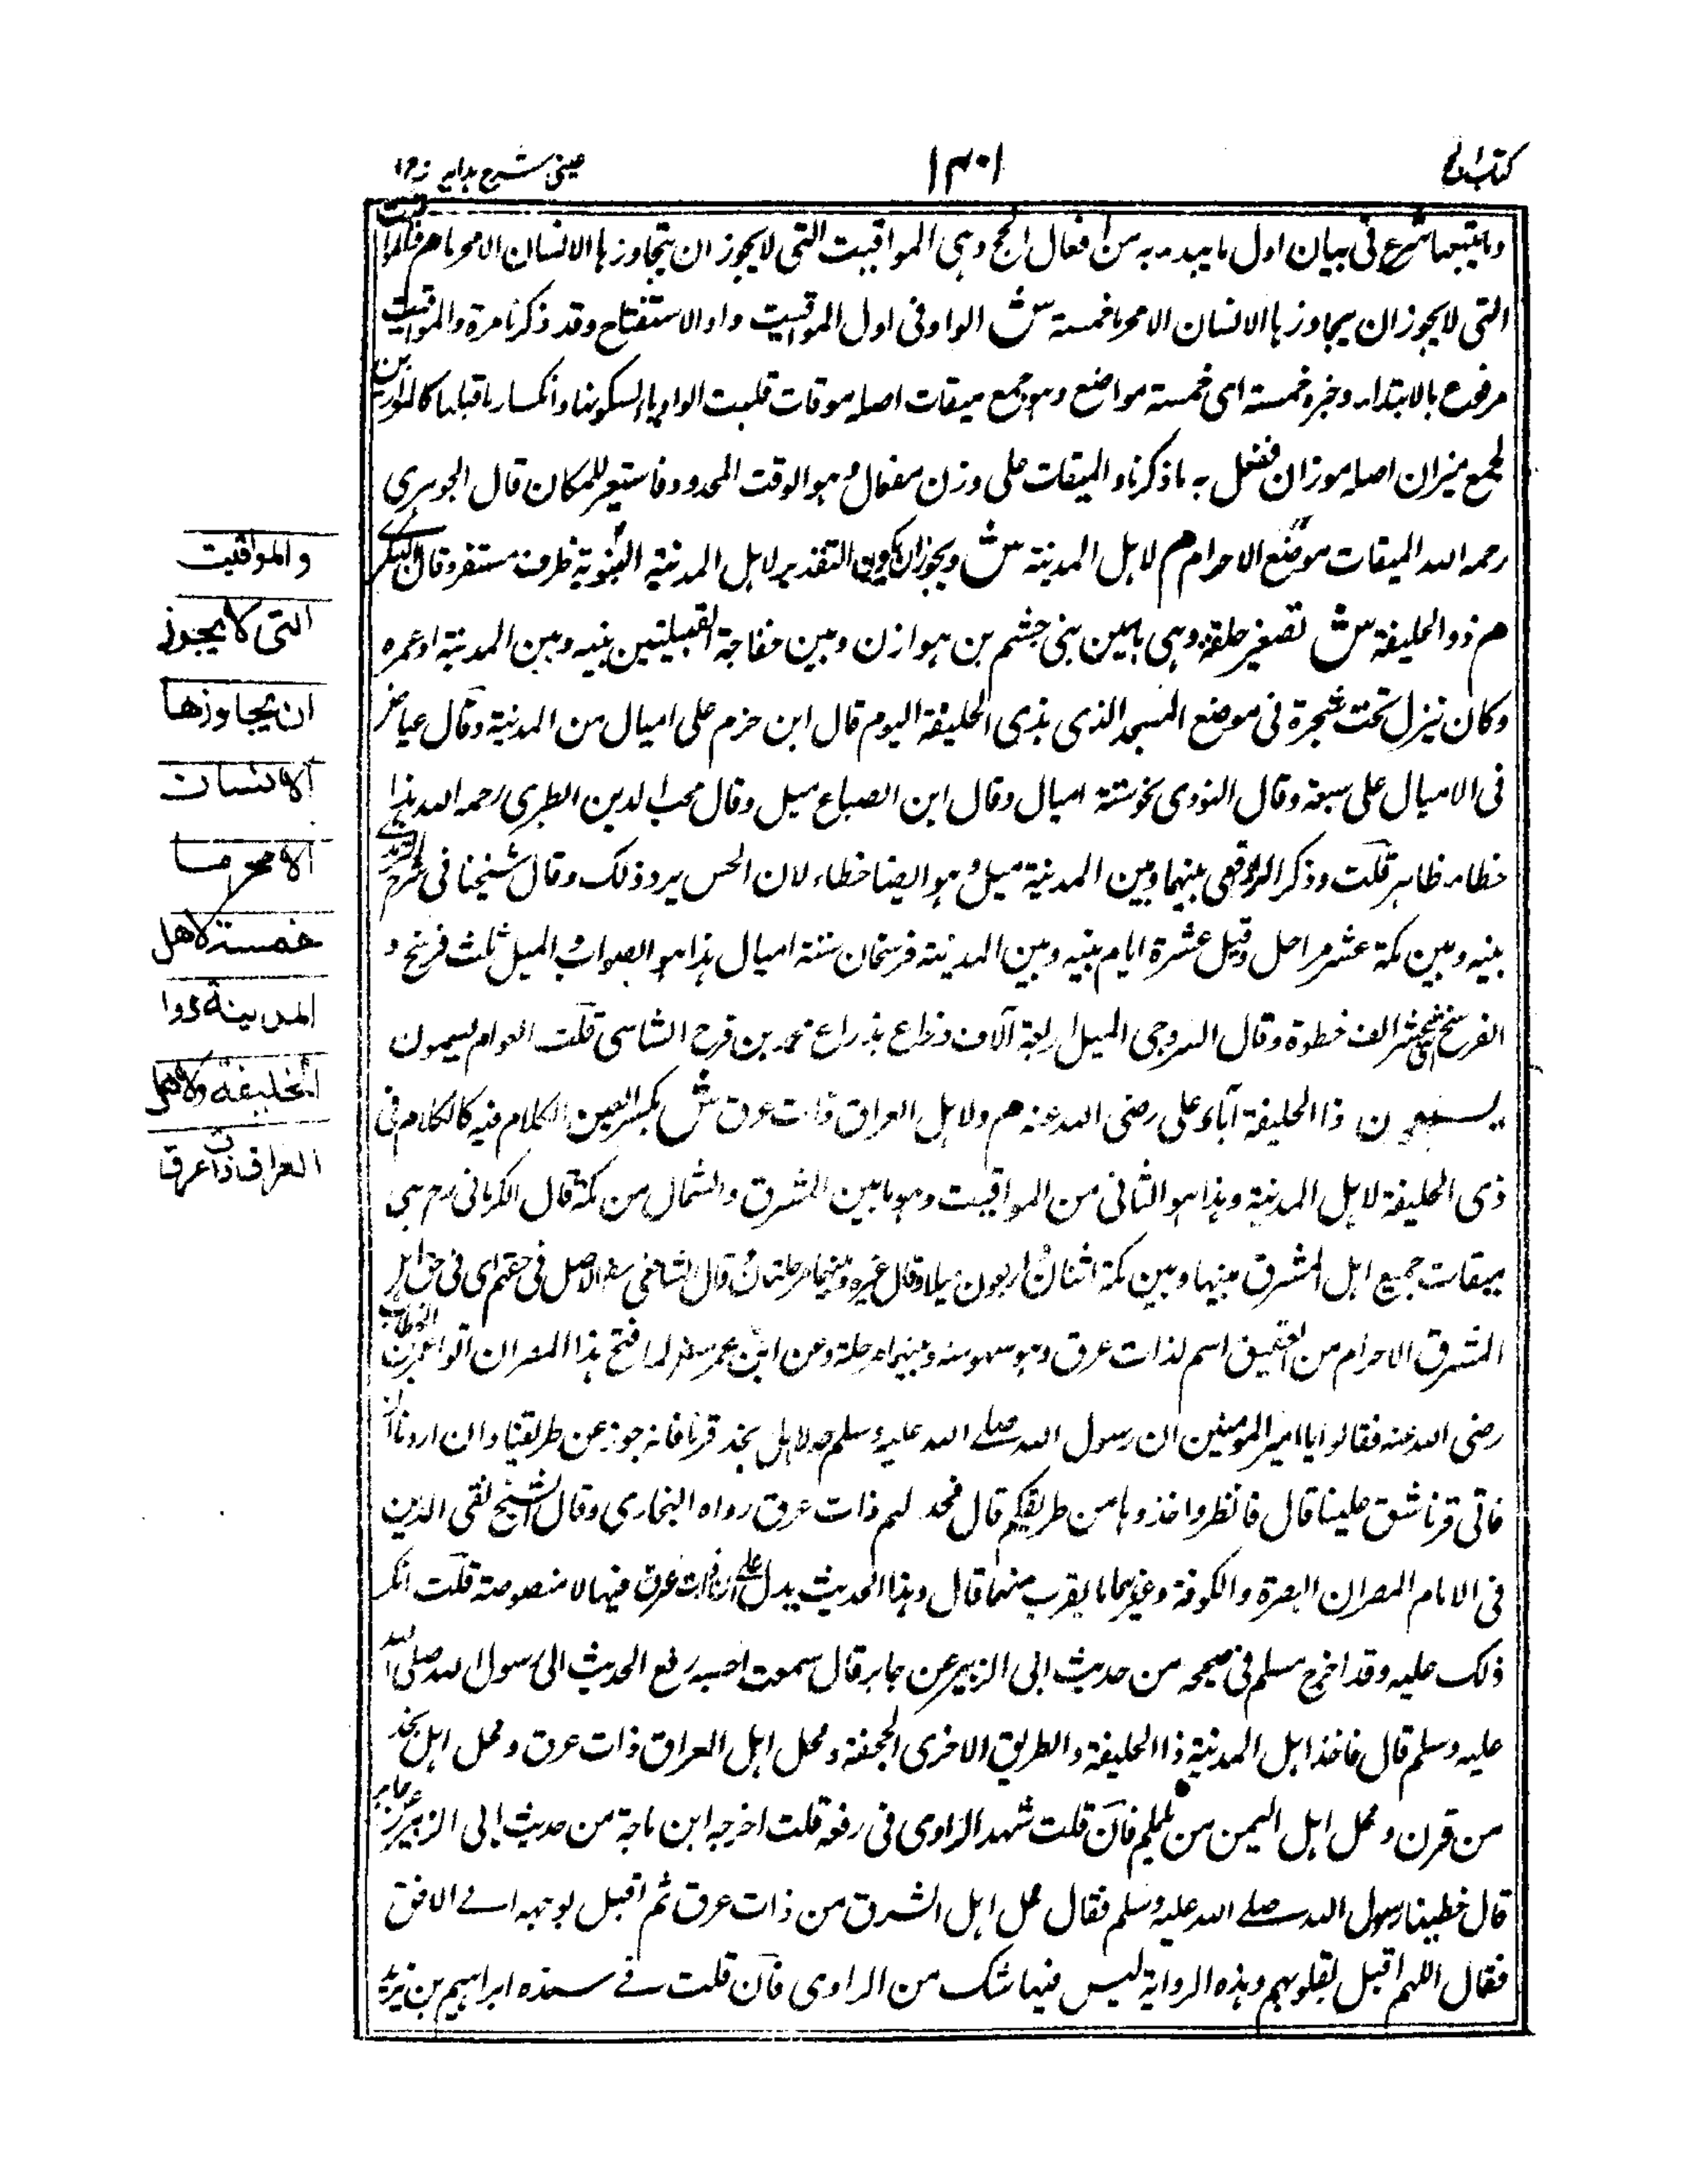 كتاب الحج
١٣٠١
عينى شرح هدايه ج ١
وما يتبعها شرع فى بيان اول ما يبدء به من افعال الحج وهى المواقيت التى لا يجوز ان يتجاوزها الانسان الا محرما م والمواقيت
التى لا يجوز ان يجاوزها الانسان الا محرما خمسة ش الواو فى اول المواقيت واو الاستفتاح وقد ذكرنا مرة والمواقيت
مرفوع بالابتداء وخبره خمسة اى خمسة مواضع وهو جمع ميقات اصله موقات قلبت الواو ياء لسكونها وانكسار ما قبلها كالموازين
لجمع ميزان اصله موزان ففعل به ما ذكرنا والميقات على وزن مفعال وهو الوقت المحدود فاستعير للمكان قال الجوهرى
رحمه الله الميقات موضع الاحرام م لاهل المدينة ش ويجوز ان يكون التقدير لاهل المدينة النبوية ظرف مستقر وقال
م ذو الحليفة ش تصغير حلقة وهى مابين بنى جشم بن هوازن وبين خفاجة القبيلتين بينه وبين المدينة
وكان ينزل تحت شجرة فى موضع المسجد الذى بذى الحليفة اليوم قال ابن حزم على اميال من المدينة وقال عياض
فى الاميال على سبعة وقال النووى نحو ستة اميال وقال ابن الصباغ ميل وقال محب الدين الطبرى رحمه الله هذا
خطاء ظاهر قلت وذكر الرافعى بينهما وبين المدينة ميل وهو ايضا خطاء لان الحس يرد ذلك وقال شيخنا فى شرح الترمذى
بينه وبين مكة عشر مراحل وقيل عشرة ايام بينه وبين المدينة فرسخان ستة اميال هذا هو الصواب والميل ثلث فرسخ و
الفرسخ اثنى عشر الف خطوة وقال السروجى الميل اربعة آلاف ذراع بذراع محمد بن فرج الشاسى قلت العوام يسمون
يسمون ذا الحليفة آباد على رضى الله عنه م ولاهل العراق ذات عرق ش بكسر العين الكلام فيه كالكلام فى
ذى الحليفة لاهل المدينة وهذا هو الثانى من المواقيت وهو مابين المشرق والشمال من مكة قال الكرمانى رح هى
ميقات جميع اهل المشرق بينها وبين مكة اثنان واربعون ميلا وقال غيره وبينهما مرحلتان وقال الشافعى رح الاصل فى حقهم اى فى حق اهل
المشرق الاحرام من العقيق اسم لذات عرق وهو سهو منه وبينهما مرحلة وعن ابن عمر رض لما فتح هذا المصران اتوا عمر بن الخطاب
رضى الله عنه فقالوا يا امير المومنين ان رسول الله صلى الله عليه وسلم حد لاهل نجد قرنا فانه جوز عن طريقنا وان اردنا ان
ناتى قرنا شق علينا قال فانظروا حذوها من طريقكم قال فحد لهم ذات عرق رواه البخارى وقال الشيخ تقى الدين
فى الامام المصران البصرة والكوفة وغيرهما ما يقرب منهما قال وهذا الحديث يدل على ان ذات عرق فيها لا منصوصة قلت انكر
ذلك عليه وقد اخرج مسلم فى صحيحه من حديث ابى الزبير عن جابر قال سمعت احسبه رفع الحديث الى رسول الله صلى الله
عليه وسلم قال فاخذ اهل المدينة ذا الحليفة والطريق الاخرى الجحفة ومحل اهل العراق ذات عرق ومحل اهل نجد
من قرن ومحل اهل اليمن من يلملم فان قلت شهد الراوى فى رفعه قلت اخرجه ابن ماجة من حديث ابى الزبير عن جابر
قال خطبنا رسول الله صلى الله عليه وسلم فقال محل اهل الشرق من ذات عرق ثم اقبل بوجهه الى الافق
فقال اللهم اقبل بقلوبهم وهذه الرواية ليس فيها شك من الراوى فان قلت فى سنده ابراهيم بن يزيد
والمواقيت
التى لا يجوز
ان يجاوزها
الانسان
الا محرما
خمسة لاهل
المدينة ذوا
الحليفة ولاهل
العراق ذات عرق